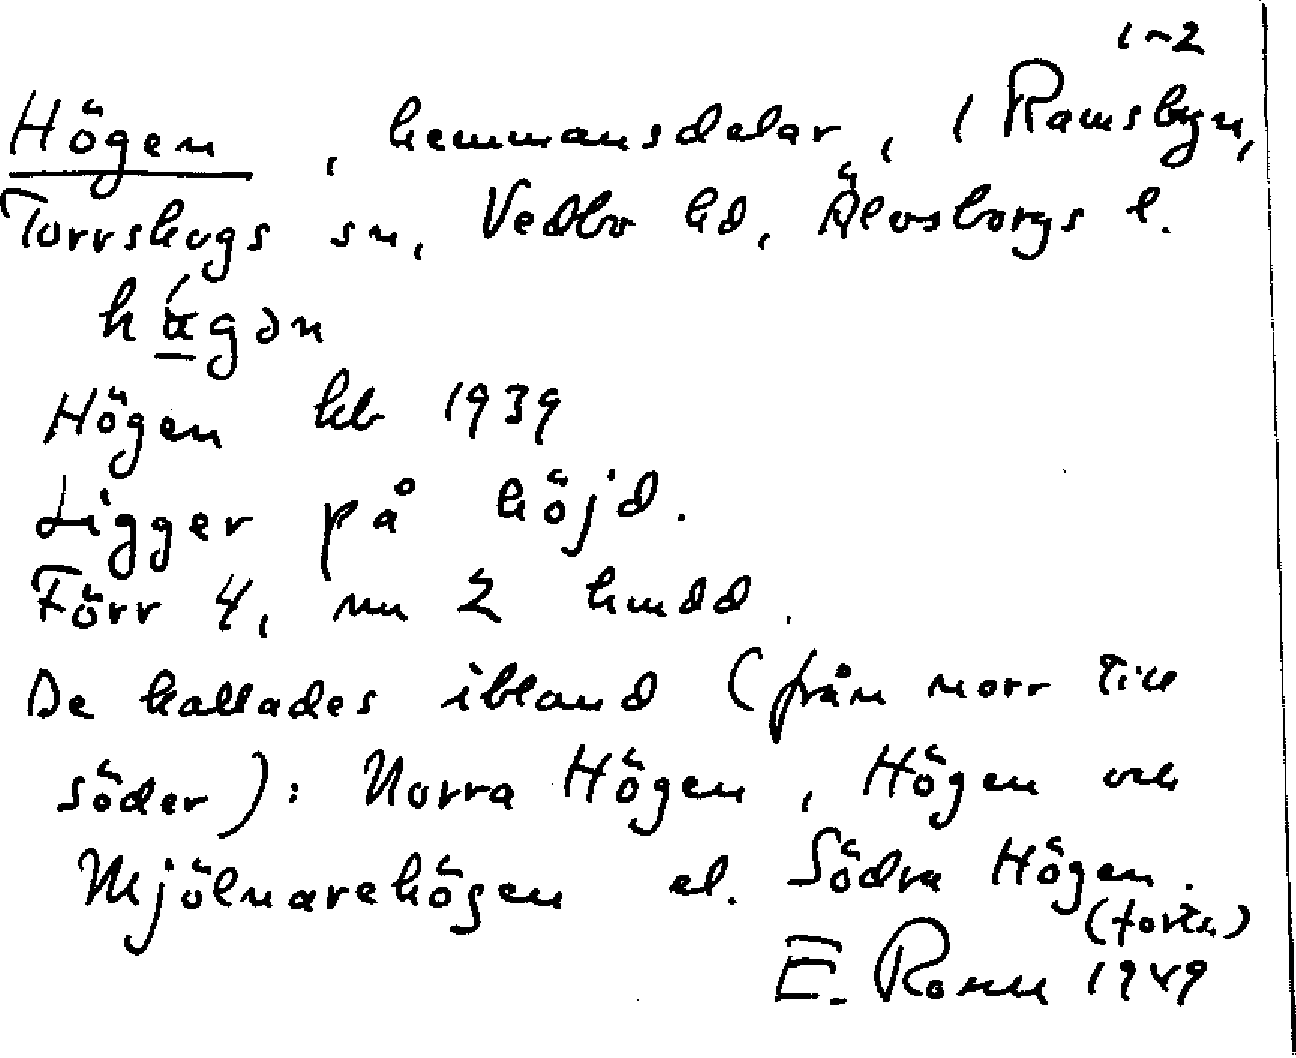 1-2
Högen, hemmansdelar, i Ramsbyn,
Torrskogs sn, Vedbo hd, Älvsborgs l.
Högen kb 1939
Ligger på höjd.
Förr 4, nu 2 hmdd.
De kallades ibland (från norr till
söder): Norra Högen, Högen och
Mjölnarehögen el. Södra Högen.
(forts.)
E. 1949